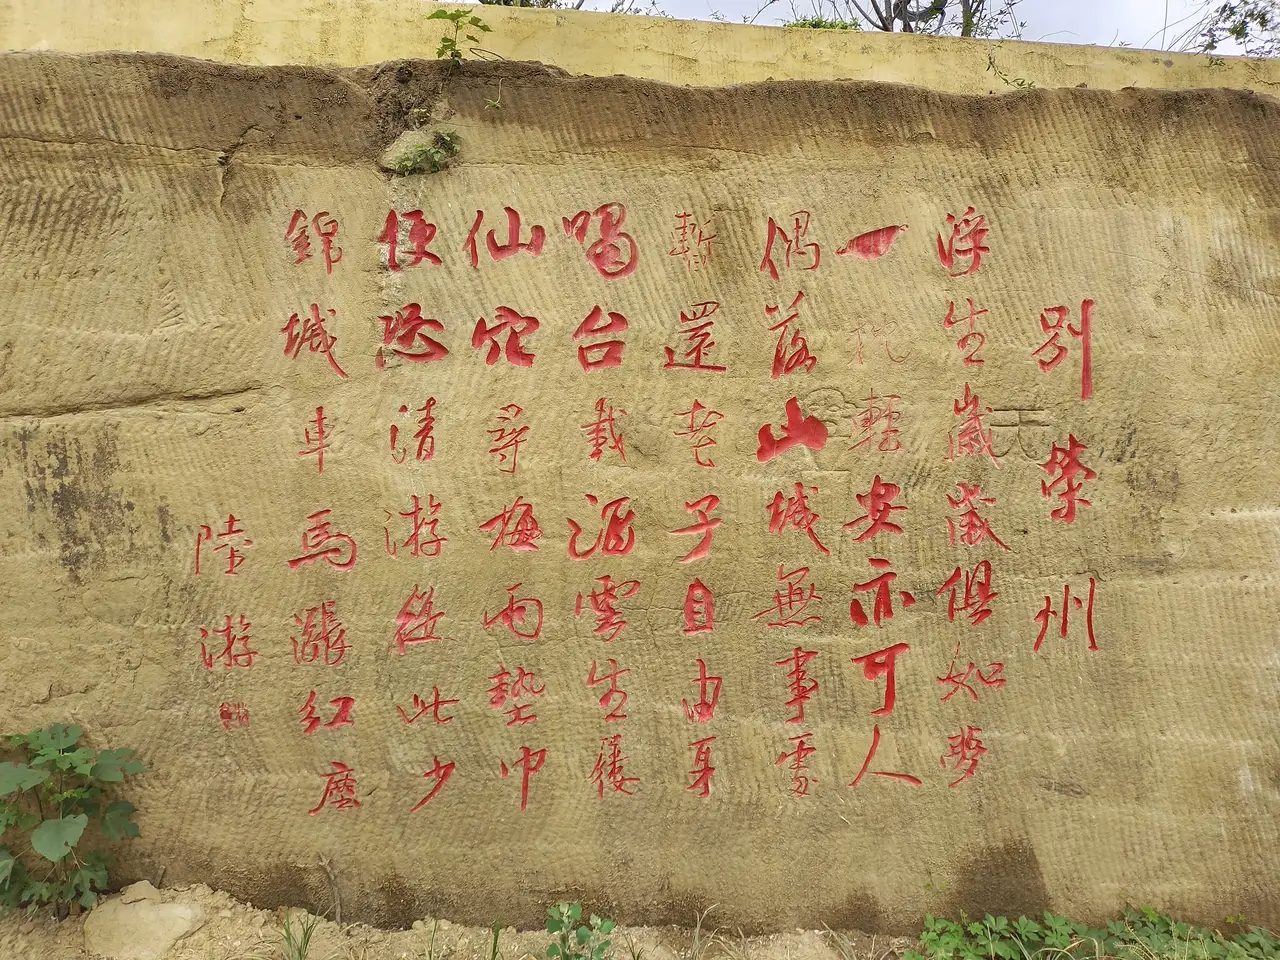 別榮州
浮生歲歲俱如夢
一枕輕安亦可人
偶落山城無事處
暫還老子自由身
喝台載酒雲生屨
仙穴尋梅雨墊巾
便恐清游從此少
錦城車馬漲紅塵
陸游